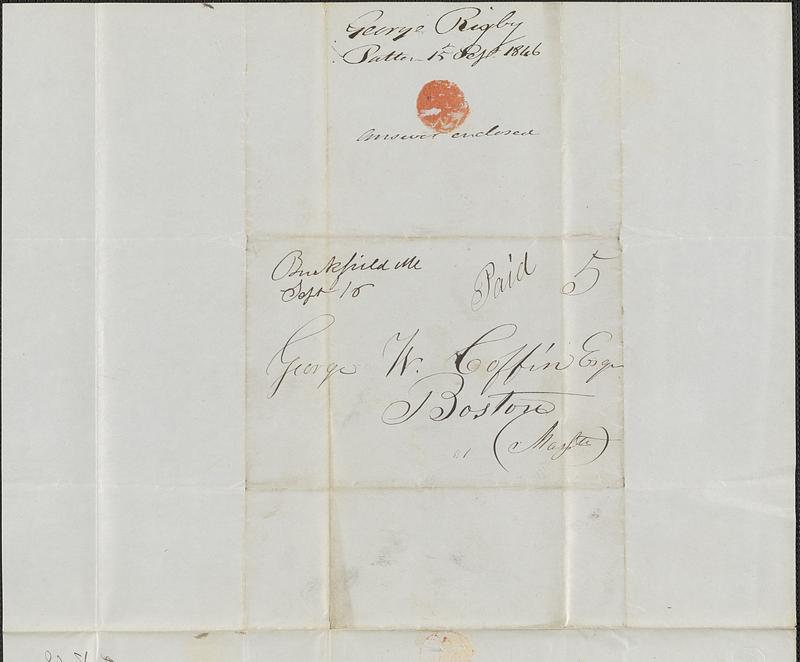 George Rigby
15 Sept 1846
answer enclosed
Buckfield Me
Sept 16
Paid 5
George W. Coffin Esqr
Boston
(Massts)